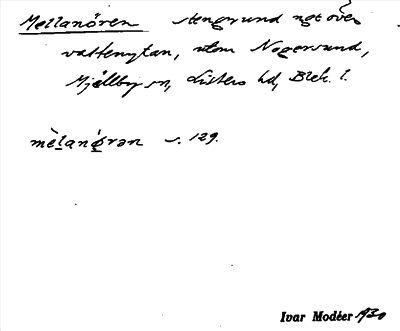 Mellanören stengrund ngt över
vattenytan, utom Nogersund,
Mjällby sn, Listers hd, Blek. l.
mèlanǿrən s. 129.
Ivar Modéer 1930